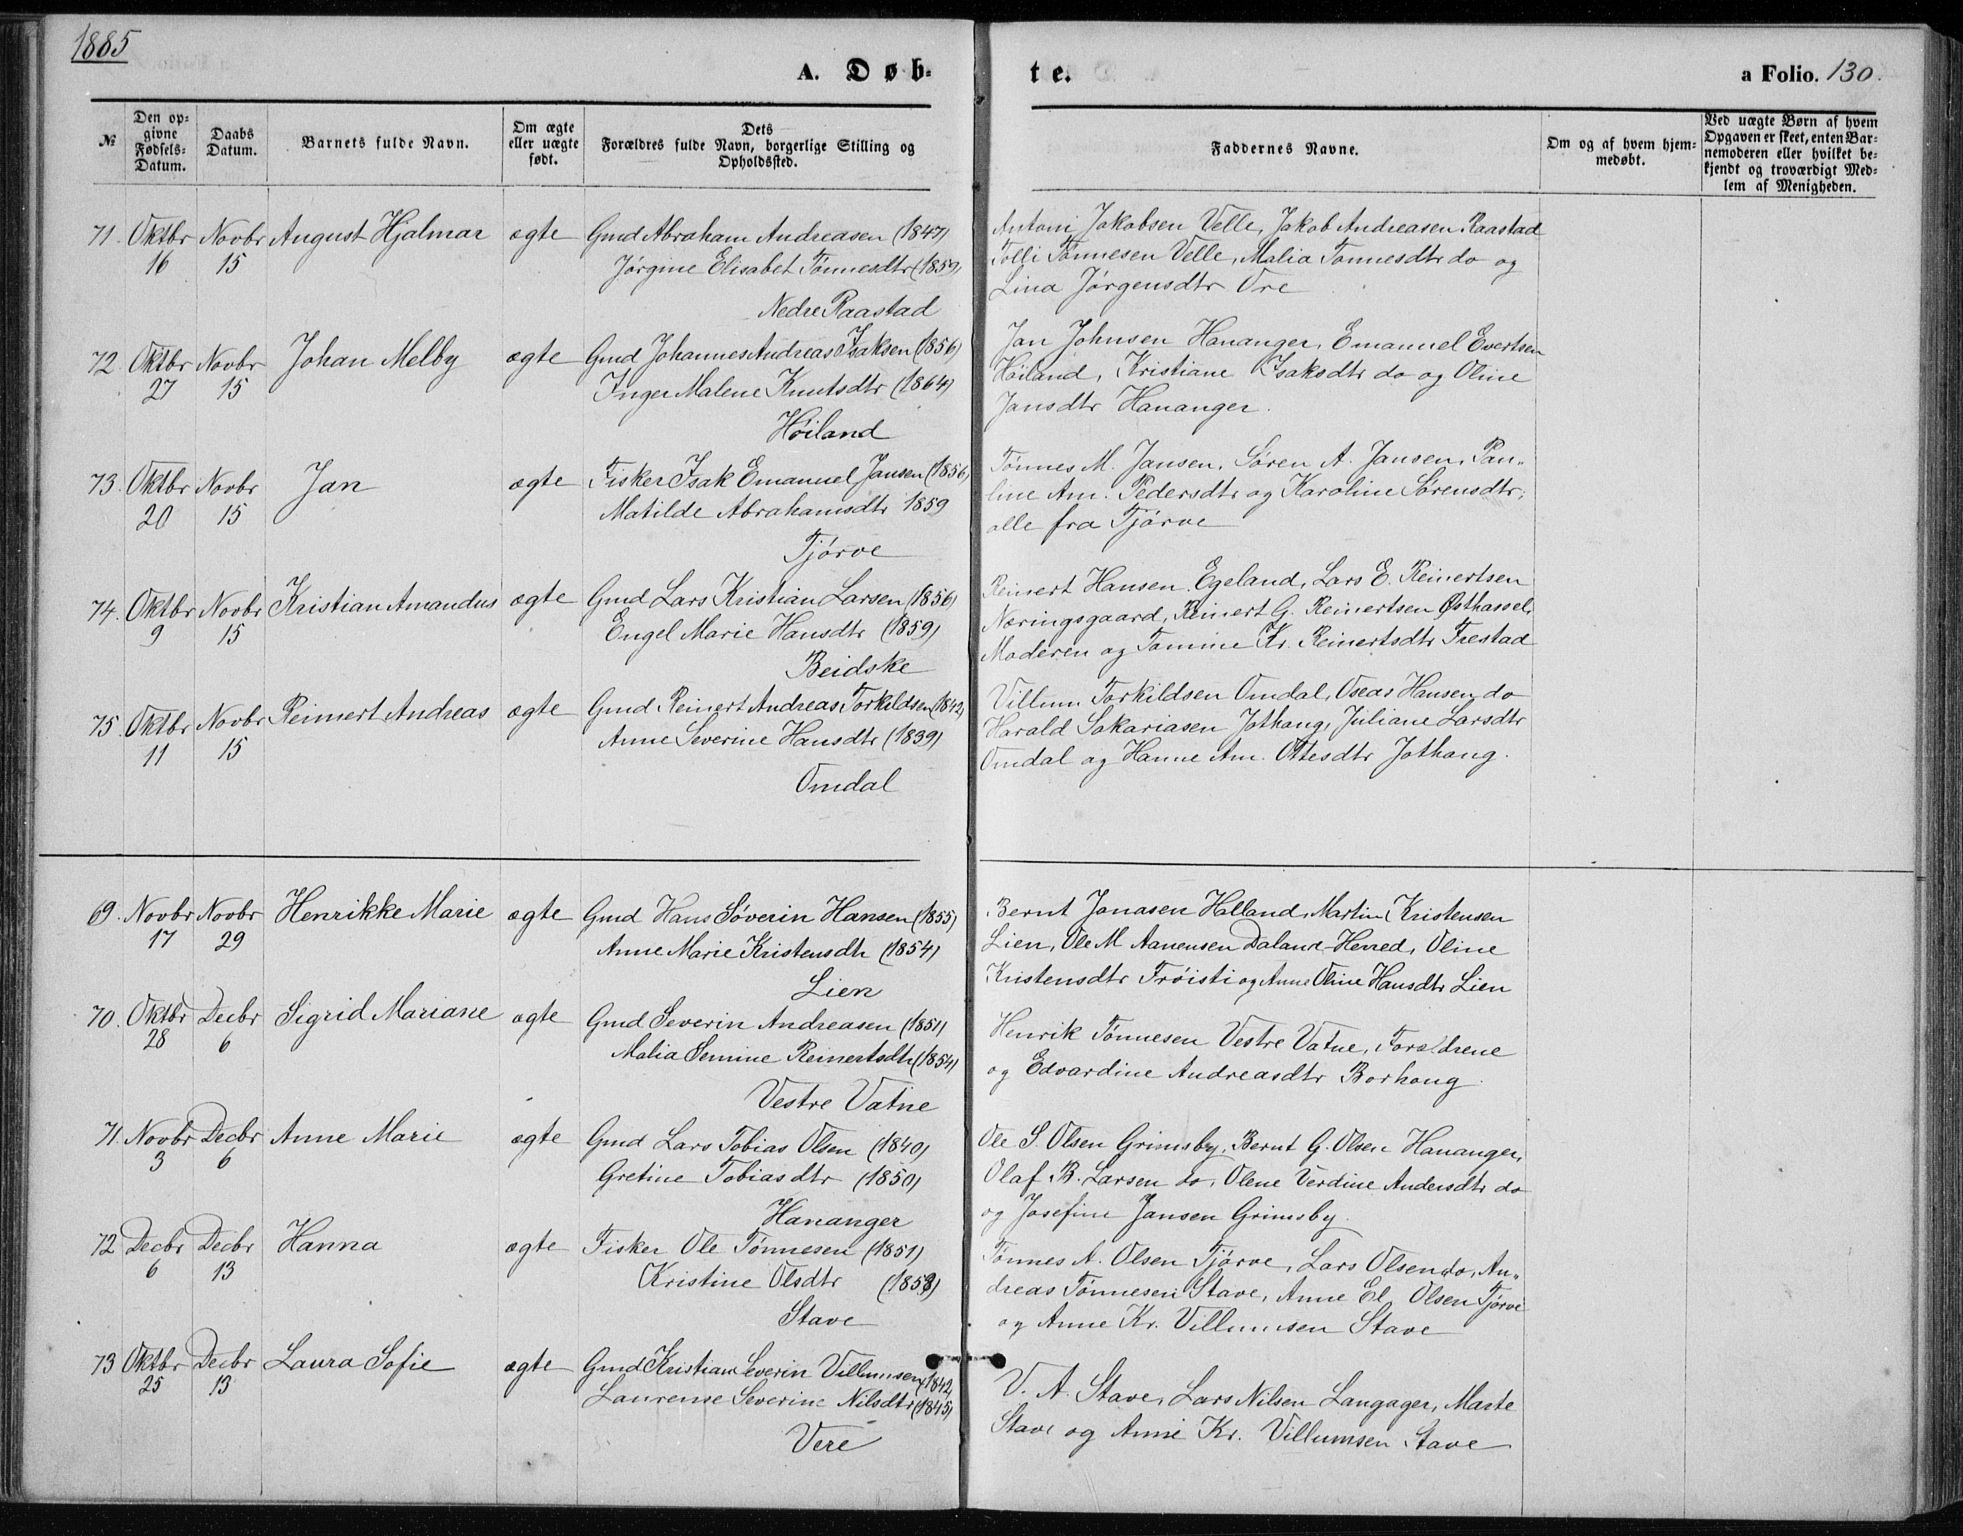 1885
A. Døb-
te.
a Folio. 130.
№
Den op-
givne
Fødsels-
Datum.
Daabs
Datum.
Barnets fulde Navn.
Om ægte
eller uægte
født.
Dets
Forældres fulde Navn, borgerlige Stilling og
Opholdssted.
Faddernes Navne.
Om og af hvem hjem-
medøbt.
Ved uægte Børn af hvem
Opgaven er skeet, enten Bar-
nemoderen eller hvilket be-
kjendt og troværdigt Med-
lem af Menigheden.
71. Oktbr Novbr August Hjalmar ægte Gmd Abraham Andreasen (1847)
16 15 Jørgine Elisabet Tønnesdtr (1859)
Nedre Raastad
Antoni Jakobsen Velle, Jakob Andreasen Raastad
Tolli Tønnesen Velle, Malia Tønnesdtr do og
Lina Jørgensdtr Ore
72. Oktbr Novbr Johan Melby ægte Gmd Johannes Andreas Isaksen (1856)
27 15 Inger Malene Knutsdtr (1864)
Høiland
Jan Johnsen Hananger, Emanuel Evertsen
Høiland, Kristiane Isaksdtr do og Oline
Jansdtr Hananger.
73. Oktbr Novbr Jan ægte Fisker Isak Emanuel Jansen (1856)
20 15 Matilde Abrahamsdtr 1859
Tjørve
Tønnes M. Jansen, Søren A. Jansen, Pau-
line Am. Pedersdtr og Karoline Sørensdtr,
alle fra Tjørve
74. Oktbr Novbr Kristian Amandus ægte Gmd Lars Kristian Larsen (1856)
9 15 Engel Marie Hansdtr (1859)
Beidske
Reinert Hansen Egeland, Lars E. Reinertsen
Næringsgaard, Reinert G. Reinertsen Østhassel,
Moderen og Tomine Kr. Reinertsdtr Frestad
75. Oktbr Novbr Reinert Andreas ægte Gmd Reinert Andreas Torkildsen (1842)
11 15 Anne Severine Hansdtr (1839)
Omdal
Villum Torkildsen Omdal, Oscar Hansen do
Harald Sakariasen Jothaug, Juliane Larsdtr
Omdal og Hanne Am. Ottesdtr Jothaug.
69. Novbr Novbr Henrikke Marie ægte Gmd Hans Søverin Hansen (1855)
17 29 Anne Marie Kristensdtr (1854)
Lien
Bernt Jonasen Halland, Martin Kristensen
Lien, Ole M Aanensen Daland-Herred, Oline
Kristensdtr Trøisti og Anne Oline Hansdtr Lien
70. Oktbr Decbr Sigrid Mariane ægte Gmd Severin Andreasen (1851)
28 6 Malia Semine Reinertsdtr (1854)
Vestre Vatne
Henrik Tønnesen Vestre Vatne, Forældrene
og Edvardine Andreasdtr Borhaug.
71. Novbr Decbr Anne Marie ægte Gmd Lars Tobias Olsen (1840)
3 6 Gretine Tobiasdtr (1850)
Hananger
Ole S. Olsen Grimsby, Bernt G. Olsen Hananger,
Olaf B. Larsen do, Olene Verdine Andersdtr do
og Josefine Jansen Grimsby.
72 Decbr Decbr Hanna ægte Fisker Ole Tønnesen (1851)
6 13 Kristine Olsdtr (1858)
Stave
Tønnes A. Olsen Tjørve, Lars Olsen do, An-
dreas Tønnesen Stave, Anne El. Olsen Tjørve
og Anne Kr. Villumsen Stave
73 Oktbr Decbr Laura Sofie ægte Gmd Kristian Severin Villumsen (1842)
25 13 Laurense Severine Nilsdtr (1845)
Vere
V. A. Stave, Lars Nilsen Langager, Marte
Stave og Anne Kr. Villumsen Stave